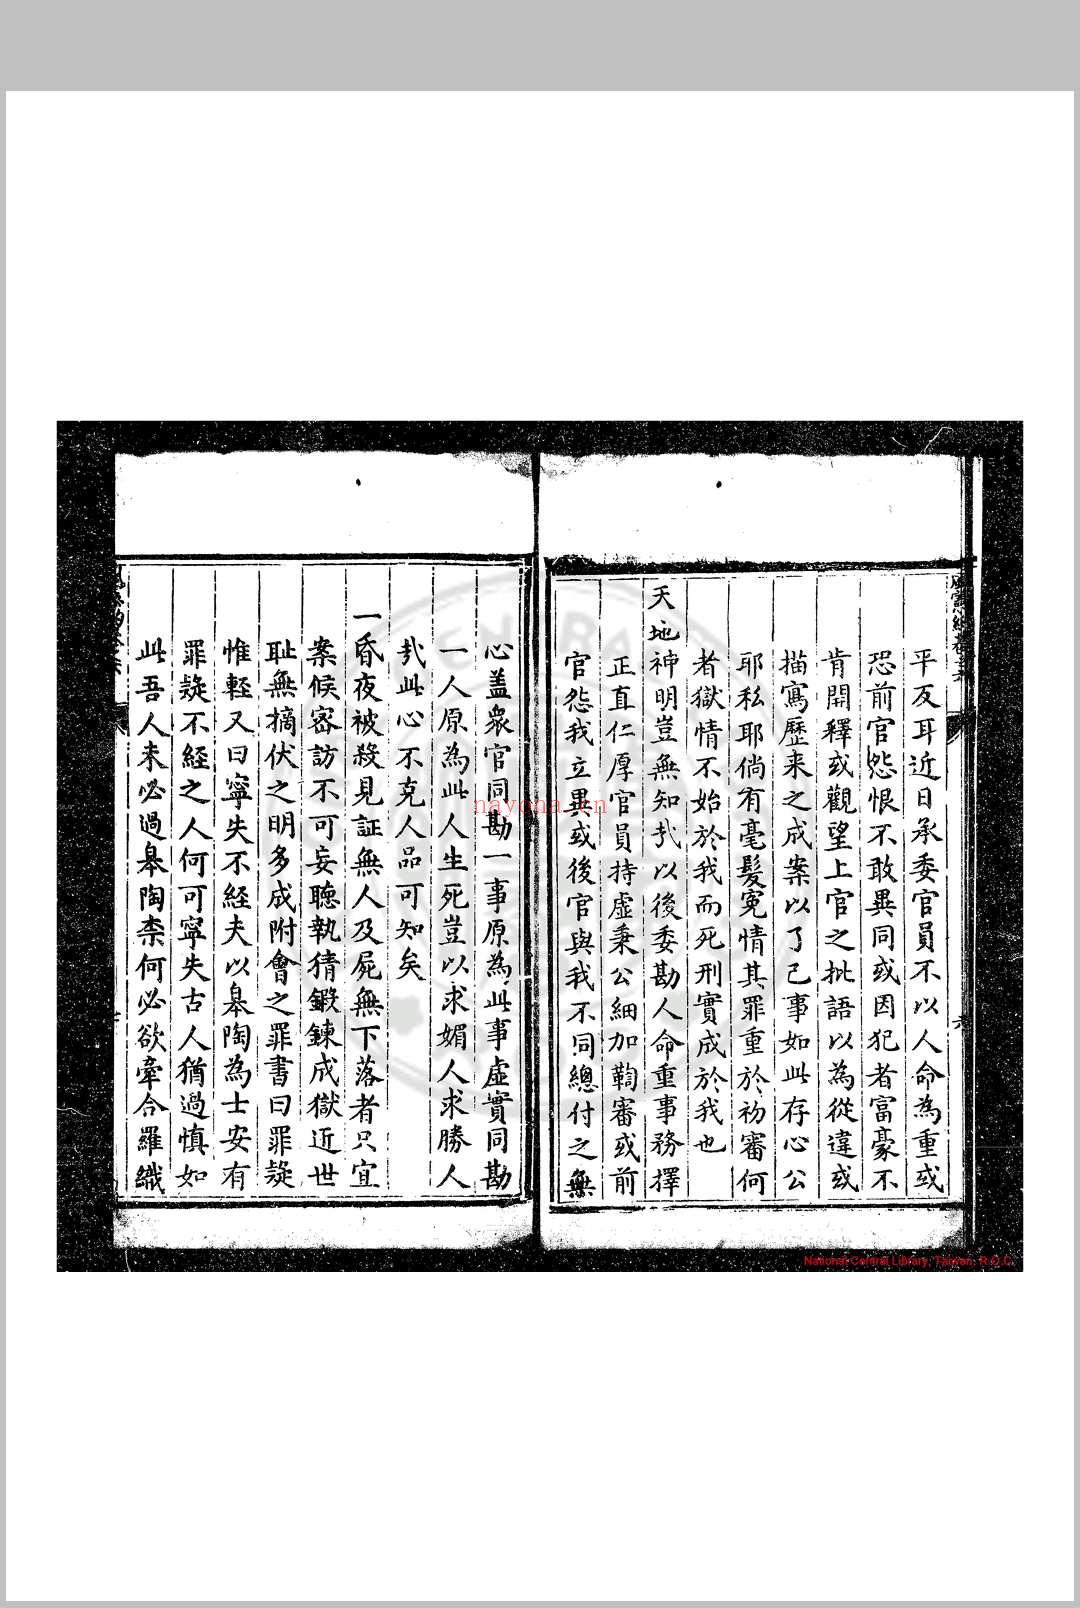 平反耳近日承委官員不以人命為重或
恐前官怨恨不敢異同或因犯者富豪不
肯開釋或觀望上官之批語以為從違或
描寫歷来之成案以了己事如此存心公
耶私耶倘有毫髮寃情其罪重於初審何
者獄情不始於我而死刑實成於我也
天地神明豈無知㢤以後委勘人命重事務擇
正直仁厚官員持虛秉公細加鞫審或前
官怨我立異或後官與我不同總付之無
心盖衆官同勘一事原為此事虛實同勘
一人原為此人生死豈以求媚人求勝人
㢤此心不克人品可知矣
一昏夜被殺見証無人及屍無下落者只宜
案候密訪不可妄聽執猜鍛鍊成獄近世
耻無摘伏之明多成附會之罪書曰罪疑
惟輕又曰寧失不經夫以皋陶為士安有
罪疑不經之人何可寧失古人猶過慎如
此吾人未必過皋陶柰何必欲牽合羅織
nayona.cn
National Central Library, Taiwan, R.O.C.